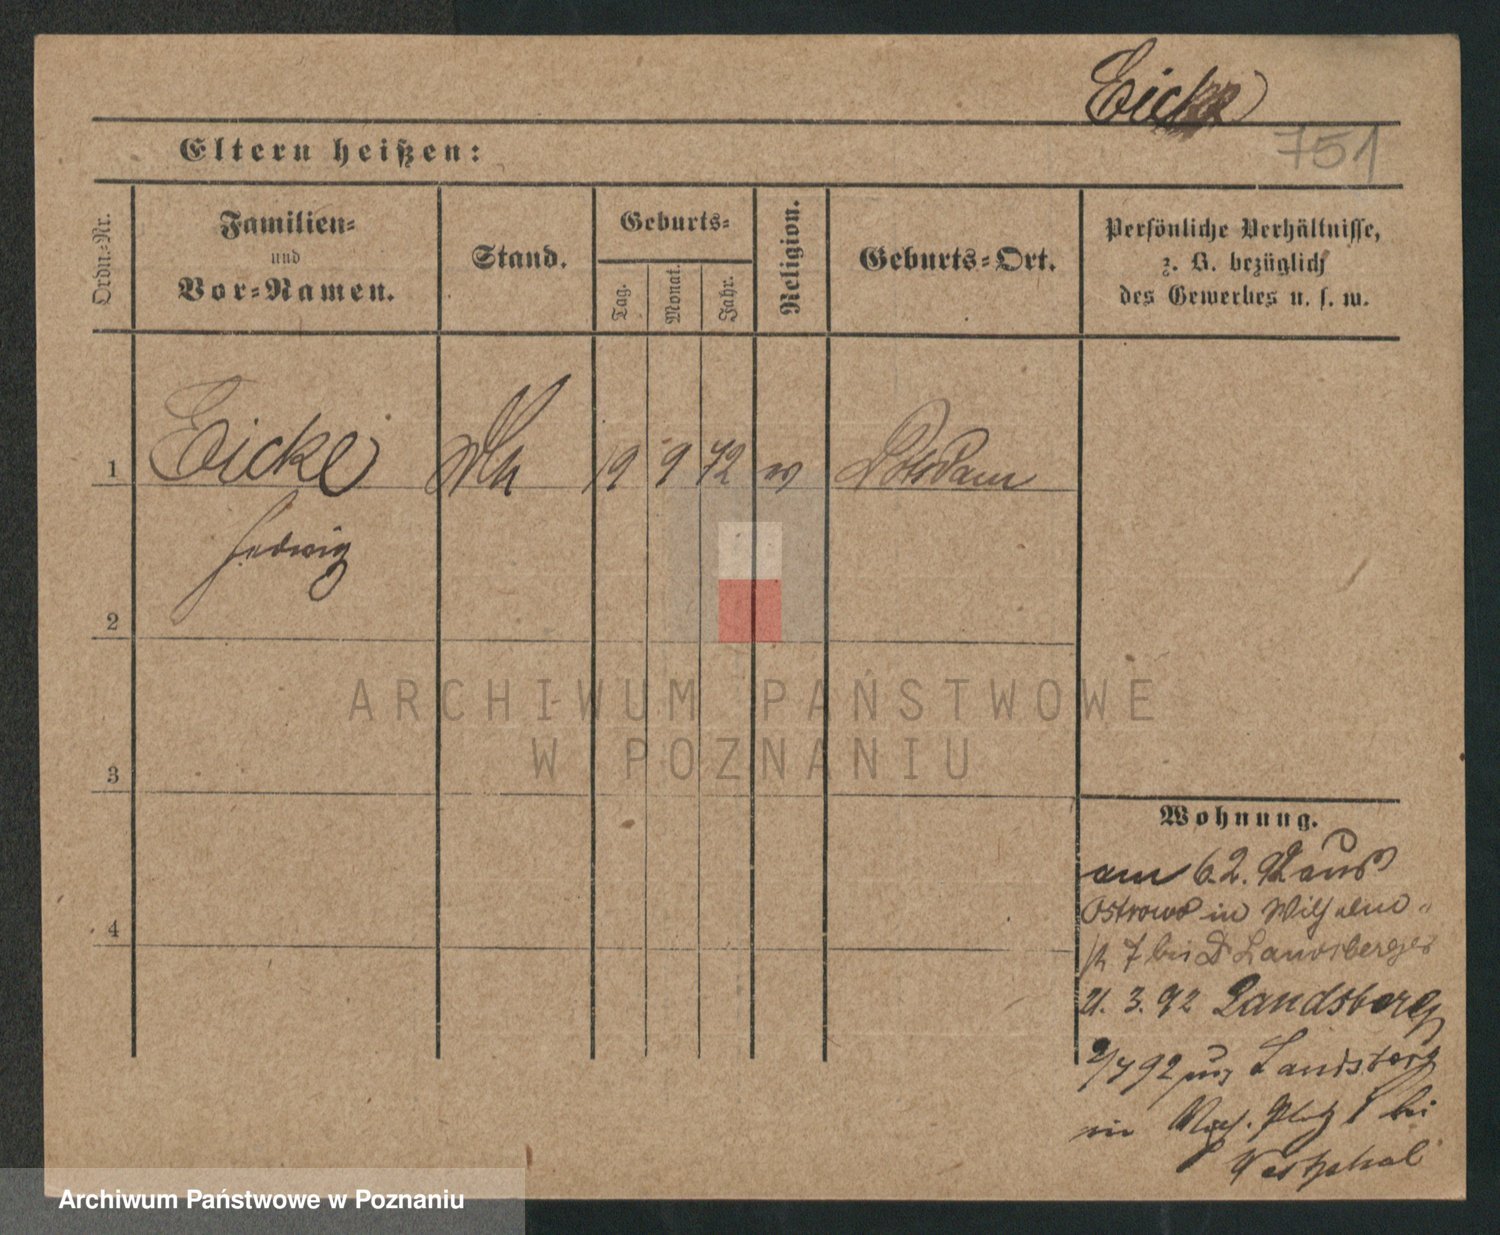 Eicke
751
Eltern heißen:
Ordn.-Nr.
Familien-
und
Vor-Namen.
Stand.
Geburts-
Tag.
Monat.
Jahr.
Religion.
Geburts-Ort.
Persönliche Verhältnisse,
z. B. bezüglich
des Gewerbes u. s. w.
1 Eicke 19 9 72 Potsdam
Hedwig
2
ARCHIWUM PAŃSTWOWE
W POZNANIU
3
Wohnung.
am 6.2. 92 aus
Ostrowo in Wilhelm-
st 7 bei Dr Landsberger
21. 3. 92 Landsberg
9/4 92 aus Landsberg
in Platz 1 bei
Westphal
4
Archiwum Państwowe w Poznaniu